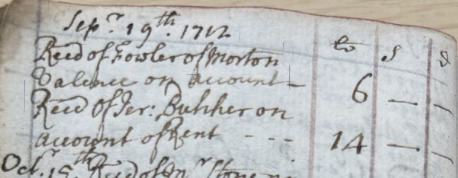 Sepr. 19th. 1712 lb s d
Recd of Fowler of Morton
Valence on account - 6 — —
Recd of Jer: Butcher on
account of Rent - - - 14 — —
Octr. 15th Recd of Mr Stone